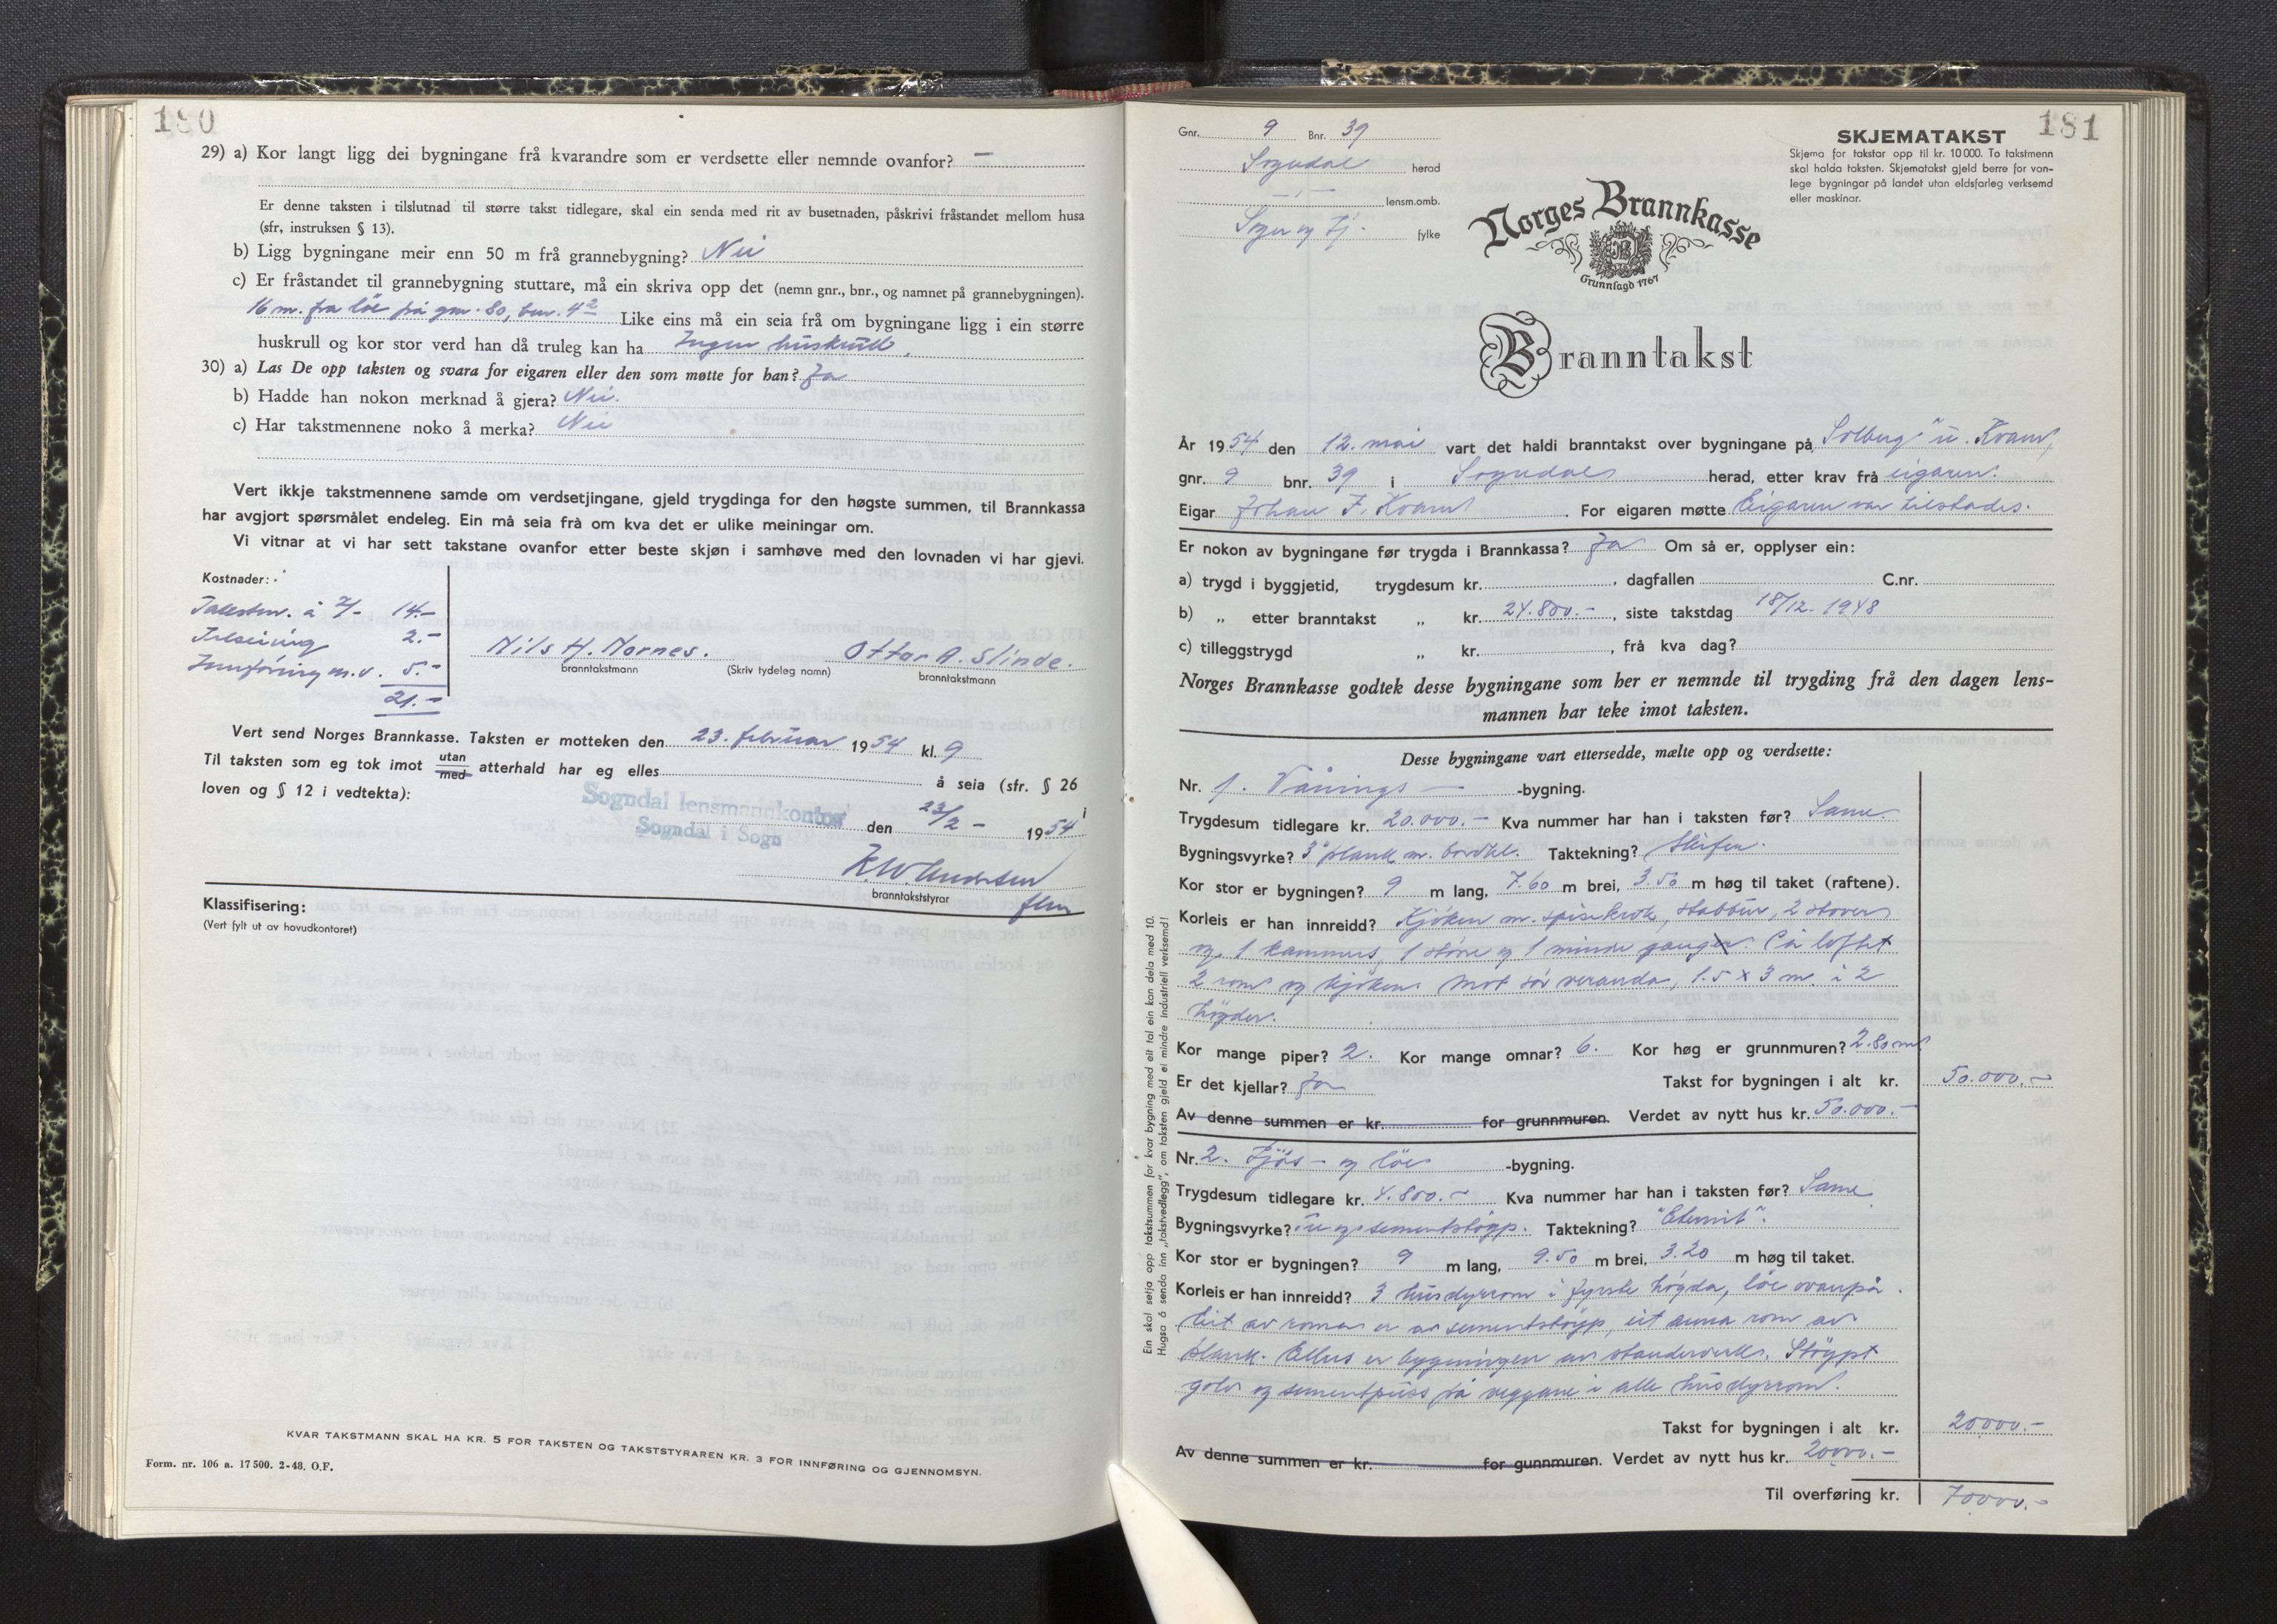 180
29) a) Kor langt ligg dei bygningane frå kvarandre som er verdsette eller nemnde ovanfor? —
Er denne taksten i tilslutnad til større takst tidlegare, skal ein senda med rit av busetnaden, påskrivi fråstandet mellom husa
(sfr, instruksen § 13).
b) Ligg bygningane meir enn 50 m frå grannebygning? Nei
c) Er fråstandet til grannebygning stuttare, må ein skriva opp det (nemn gnr., bnr., og namnet på grannebygningen).
16 m. fra löe på gnr. 80, bnr. 42 Like eins må ein seia frå om bygningane ligg i ein større
huskrull og kor stor verd han då truleg kan ha Ingen huskrull.
30) a) Las De opp taksten og svara for eigaren eller den som møtte for han? Ja
b) Hadde han nokon merknad å gjera? Nei.
c) Har takstmennene noko å merka? Nei
Vert ikkje takstmennene samde om verdsetjingane, gjeld trygdinga for den høgste summen, til Brannkassa
har avgjort spørsmålet endeleg. Ein må seia frå om kva det er ulike meiningar om.
Vi vitnar at vi har sett takstane ovanfor etter beste skjøn i samhøve med den lovnaden vi har gjevi.
Kostnader:
Takstm. à 7/- 14.-
Tilseiing 2.-
Innföring m.v. 5.-
21.-
Nils H. Nornes. Ottar A. Slinde.
branntakstmann (Skriv tydeleg namn) branntakstmann
Vert send Norges Brannkasse. Taksten er motteken den 23. februar 1954 kl. 9
Til taksten som eg tok imot utan med atterhald har eg elles å seia (sfr. § 26
loven og § 12 i vedtekta):
Sogndal lensmannkontor i
Sogndal i Sogn den 23/2 - 1954
branntakststyrar
Klassifisering:
(Vert fylt ut av hovudkontoret)
KVAR TAKSTMANN SKAL HA KR. 5 FOR TAKSTEN OG TAKSTSTYRAREN KR. 3 FOR INNFØRING OG GJENNOMSYN.
Form. nr. 106 a. 17 500. 2-48. O.F.
181
Gnr. 9 Bnr. 39
Sogndal herad
— lensm.omb.
Sogn og Fj. fylke
SKJEMATAKST
Skjema for takstar opp til kr. 10 000. To takstmenn
skal halda taksten. Skjematakst gjeld berre for van-
lege bygningar på landet utan eldsfarleg verksemd
eller maskinor.
Norges Brannkasse
Grunnlagd 1767
Branntakst
År 1954 den 12. mai vart det haldi branntakst over bygningane på „Solberg" u. Kvam,
gnr. 9 bnr. 39 i Sogndal herad, etter krav frå eigaren.
Eigar Johan J. Kvam. For eigaren møtte Eigaren var tilstades.
Er nokon av bygningane før trygda i Brannkassa? Ja Om så er, opplyser ein:
a) trygd i byggjetid, trygdesum kr. , dagfallen C.nr.
b) „ etter branntakst „ kr. 24.800.-, siste takstdag 18/12. 1948
c) tilleggstrygd „ kr. , frå kva dag?
Norges Brannkasse godtek desse bygningane som her er nemnde til trygding frå den dagen lens-
mannen har teke imot taksten.
Desse bygningane vart ettersedde, mælte opp og verdsette:
Nr. 1. Vånings -bygning.
Trygdesum tidlegare kr. 20.000.- Kva nummer har han i taksten før? Same.
Bygningsvyrke? 3" plank m. bordkl. Taktekning? Skifer.
Kor stor er bygningen? 9 m lang, 7.60 m brei, 3.50 m høg til taket (raftene).
Korleis er han innreidd? Kjöken m. spisekrok, stabbur, 2 stover
og 1 kammers, 1 störe og 1 mindre gang. På loftet
2 rom og kjöken. Mot sör veranda, 1.5 x 3 m. i 2
högder.
Kor mange piper? 2. Kor mange omnar? 6. Kor høg er grunnmuren? 2.80 m.
Er det kjellar? Ja Takst for bygningen i alt kr. 50.000.-
Av denne summen er kr. for grunnmuren. Verdet av nytt hus kr. 50.000.-
Nr. 2. Fjös- og löe -bygning.
Trygdesum tidlegare kr. 4.800.- Kva nummer har han i taksten før? Same
Bygningsvyrke? og sementstöyp. Taktekning? "Eternit".
Kor stor er bygningen? 9 m lang, 9.50 m brei, 3.20 m høg til taket.
Korleis er han innreidd? 3 husdyrrom i fyrste högda, löe ovanpå.
Eit av romma er av sementstöyp, eit anna rom av
plank. Elles er bygningen av standerverk. Stöypt
golv og sementpuss på veggane i alle husdyrrom.
Takst for bygningen i alt kr. 20000.-
Av denne summen er kr. for gunnmuren. Verdet av nytt hus kr. 20000.-
Til overføring kr. 70000.-
Ein skal setja opp takstsummen for kvar bygning med eit tal ein kan dela med 10.
Hugsa å senda inn „takstvedlegg", om taksten gjeld ei mindre industriell verksemd!